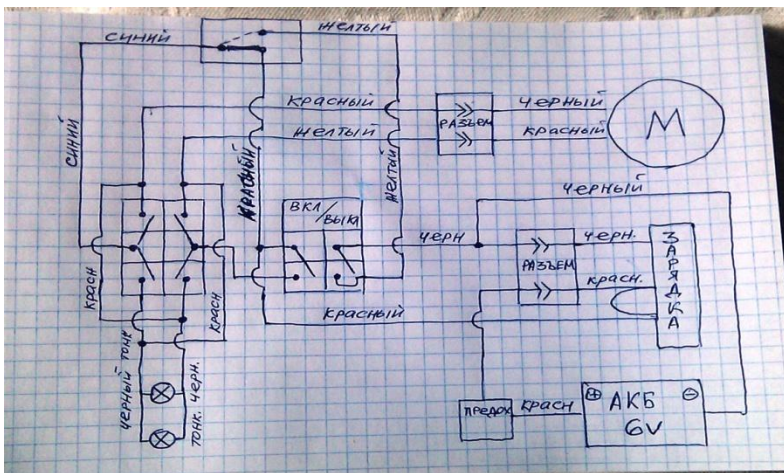 СИНИЙ
ЖЕЛТЫЙ
КРАСНЫЙ
ЧЕРНЫЙ
РАЗЪЕМ
М
ЖЕЛТЫЙ
КРАСНЫЙ
СИНИЙ
КРАСНЫЙ
ЖЕЛТЫЙ
ЧЕРНЫЙ
ВКЛ/
ВЫКЛ
ЧЕРН
ЧЕРН.
РАЗЪЕМ
КРАСН.
ЗАРЯДКА
КРАСН
КРАСН
КРАСНЫЙ
ЧЕРНЫЙ ТОНК
ТОНК. ЧЕРН.
ПРЕДОХ
КРАСН
АКБ
6V